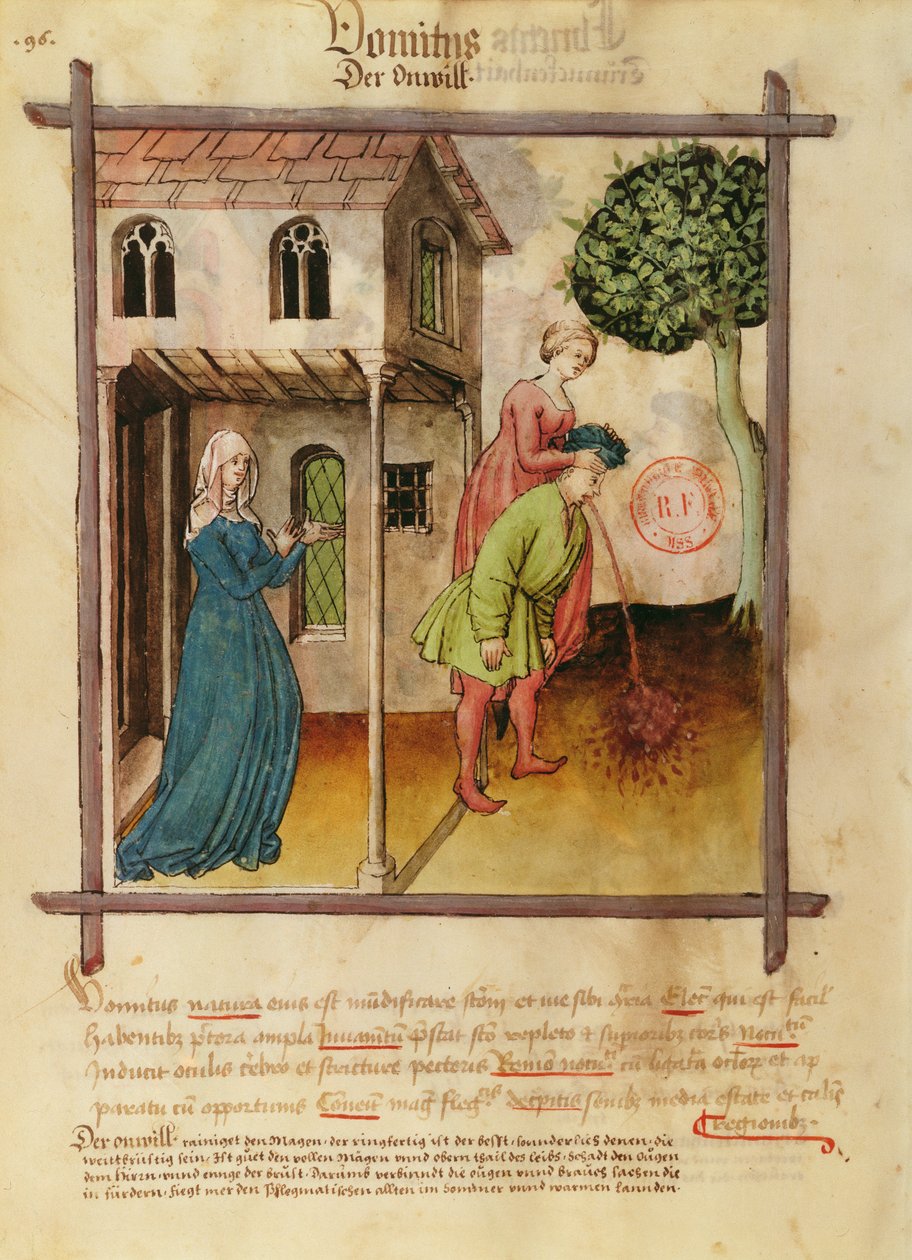 ·96·
Vomitus
Der Onwill·
R.F.
MSS
Vomitus natura eius est mūdificare stom̄ et
Elec̄ qui est facil'
habentibꝫ pectora ampla Iuuamtū p̄stat sto repleto et
Nocumtū
Inducit oculis cerebro et stricture pectoris Remō nocumti cū ligatura oculorꝫ et ap
paratu cū opportunis Conueīt mag̃ fleg̃cis decrepitis senibꝫ media estate et calidis
regionibꝫ·
Der onwill· rainiget den Magen· der ringfertig ist der besst· sounderlich denen· die
weittbrüstig sein· Ist guet den vollen Mägen vnnd obern thail des leibs· Schadt den ougen
dem hirn· vnnd ennge der brust· Darumb verbinndt die ougen vnnd brauch sachen die
in fürdern· fiegt mer den Pflegmatischen allten im Sommer vnnd warmen lannden·